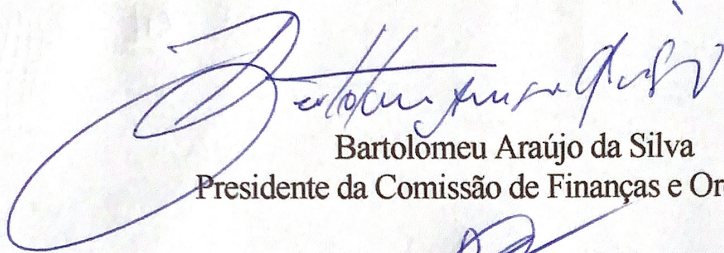 Bartolomeu Araújo da Silva
Presidente da Comissão de Finanças e Or